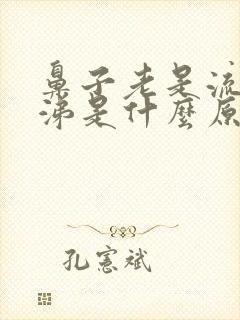 鼻子老是流
涕是什麼原
孔憲斌